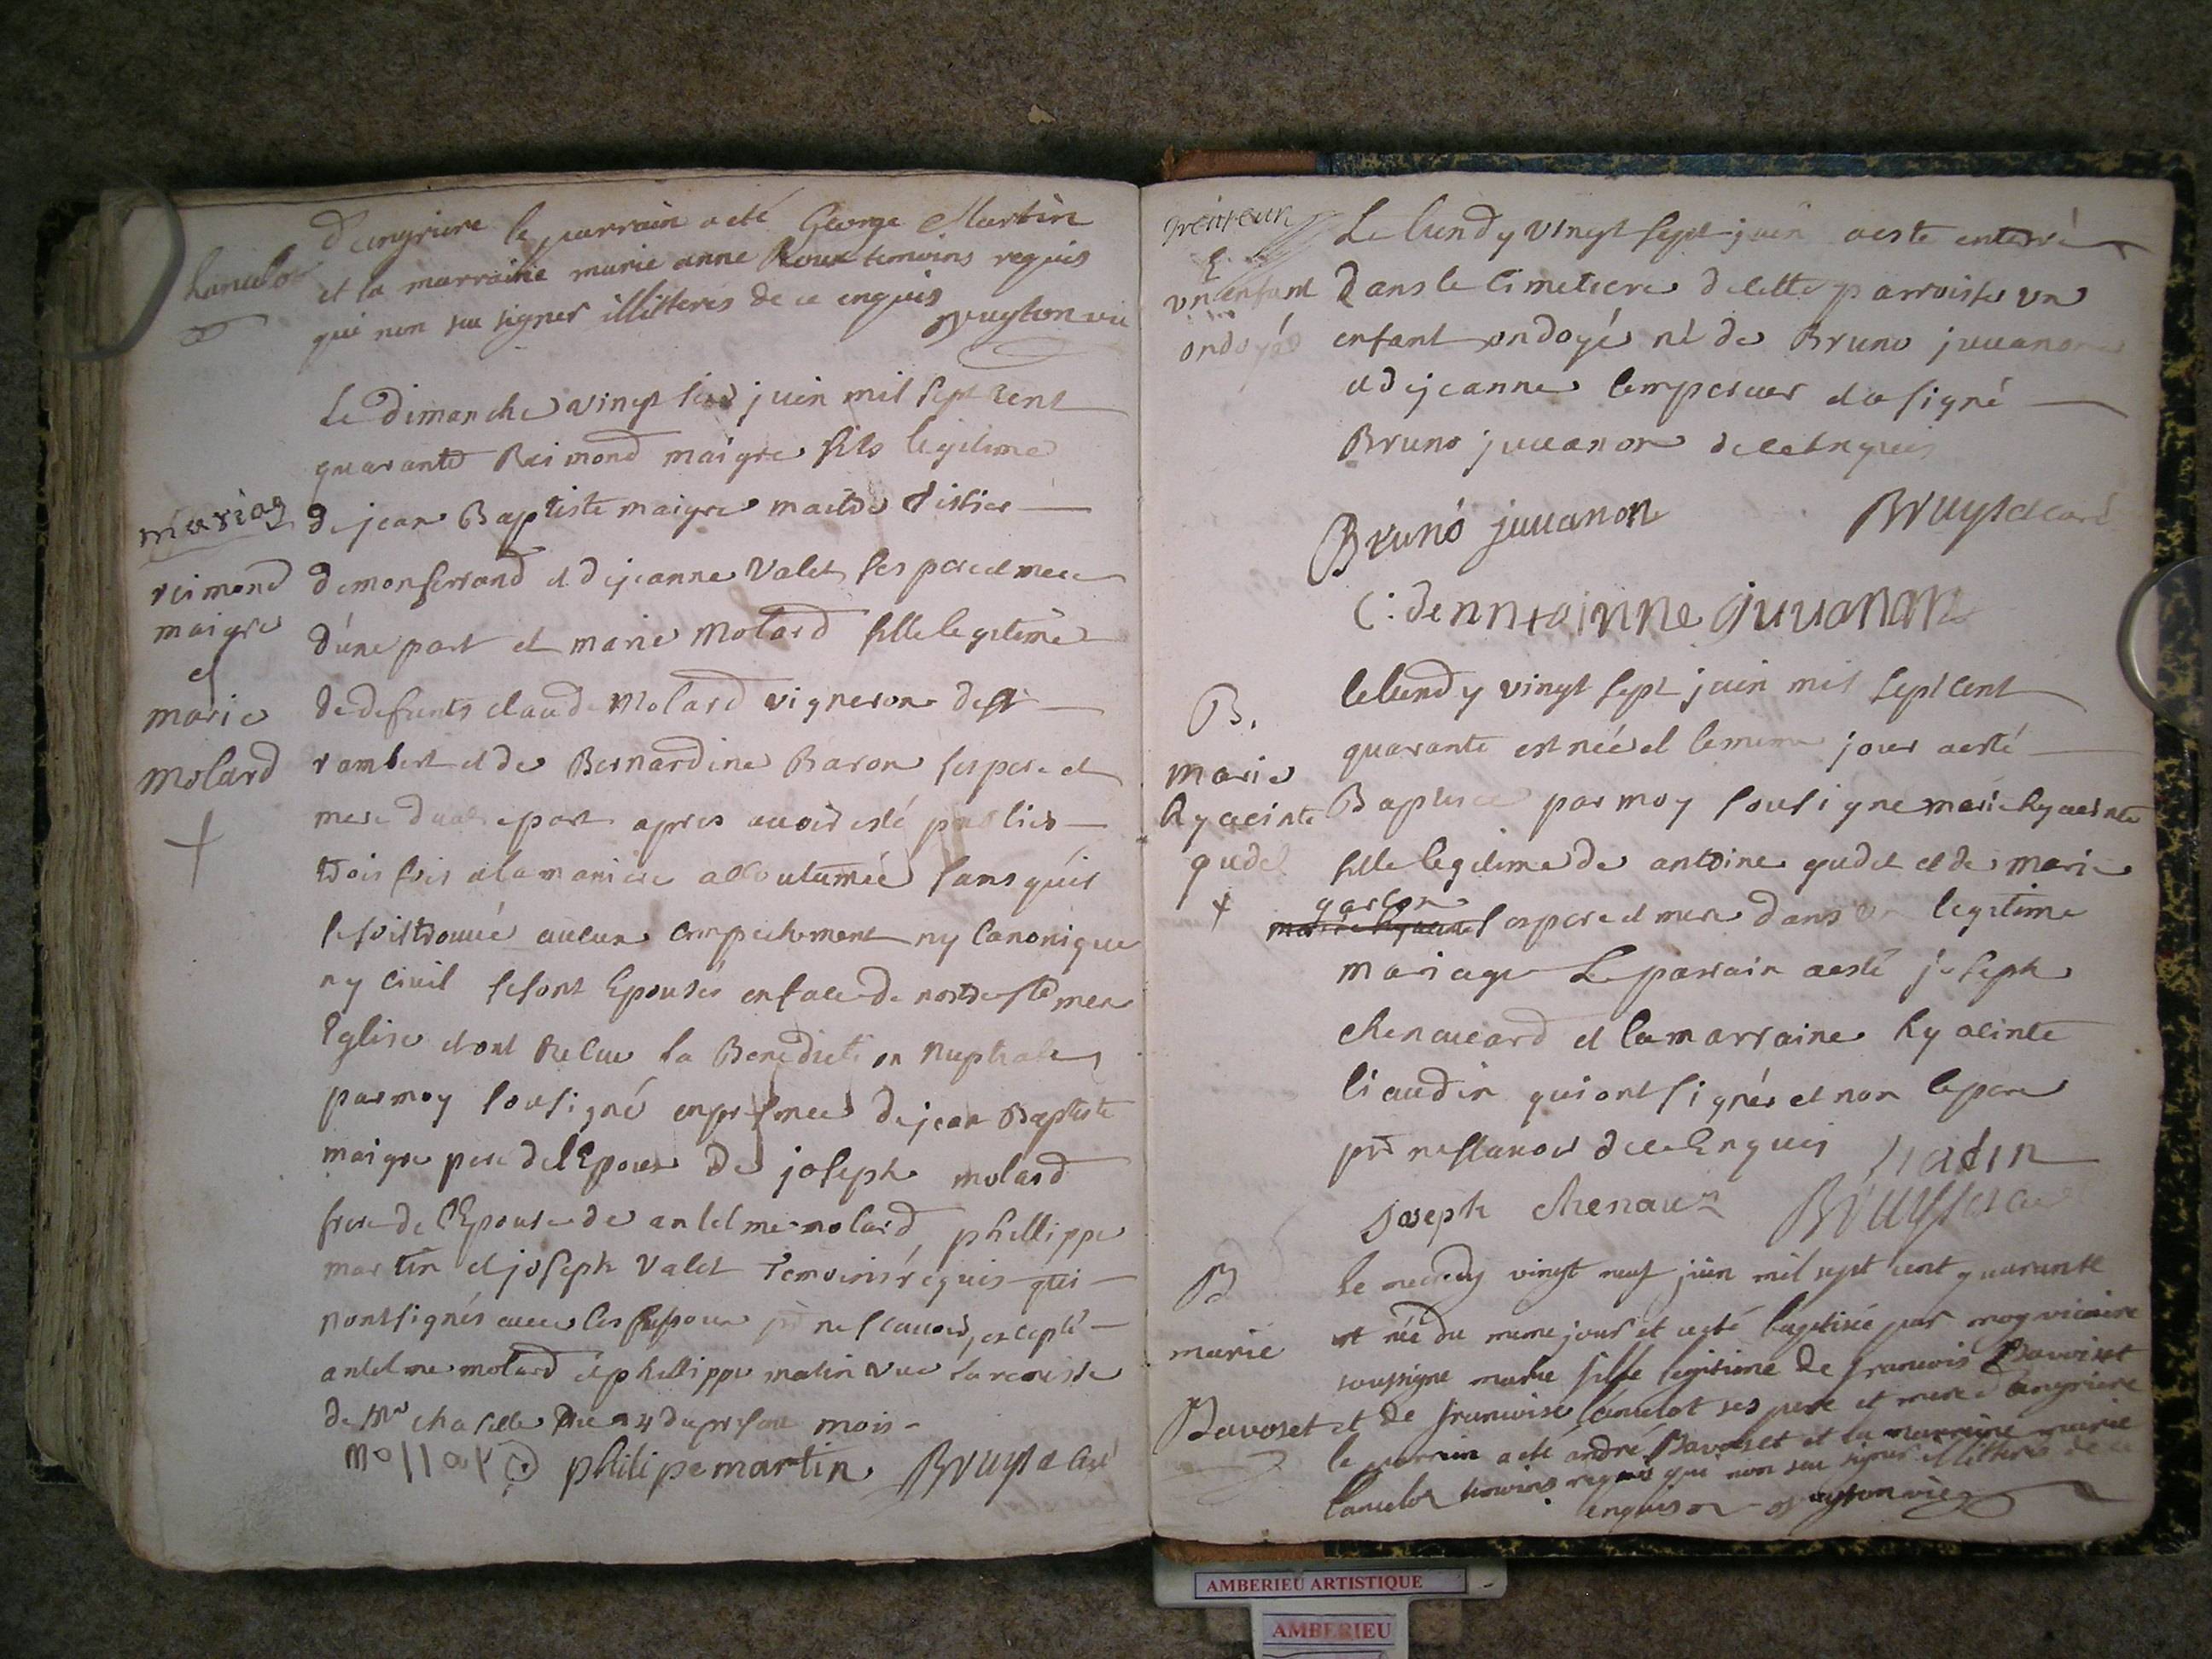 d'angriere le parrain a eté George Martin
et la marraine marie anne Roux temoins requis
qui non seu signer illitteres de ce enquis
Le dimanche vingt six juin mil sept cent
quarante Reimond maigre fils legitime
mariag de jean Baptiste maigre maitre
reimond demonferrand et de jeanne Valet ses pere et mere
maigre
et
d'une part et marie Molard fille legitime
marie de defunts claude Molard vigneron de st
molard rambert et de Bernardine Baron ses pere et
mere d'autre part apres auoir esté publies
trois fois a la maniere accoutumée sans qu'il
se soit trouué aucun empechement ny canonique
ny ciuil se sont Epousés en face de nostre ste mere
Eglise et ont recue la Benediction nuptiale
par moy sousigné en presence de jean Baptiste
maigre pere de l'Epoux de joseph molard
frere de l'Epouse de antelme molard, phillippe
martin et joseph Valet temoins requis qui
nont signés auec les Epoux pr ne scauoir, excepté
antelme molard et phillippe matin vue la remise
de Mr du 24 du present mois
mollard philipe martin Bruyset curé
Le lundy vingt sept juin a esté enterré
un enfant dans le cimetiere de cette parroisse un
ondoyé enfant ondoyé né de Bruno juuanon
et de jeanne lempereur et a signé
Bruno juuanon de ce Enquis
Bruno juuanon Bruyset curé
juuanon
B. le lundy vingt sept juin mil sept cent
quarante est née et le meme jour a esté
marie
hyacinte Baptisee par moy sousigne marie hyacinte
gudet fille legitime de antoine gudet et de marie
garlon
marie hyacinte ses pere et mere dans un legitime
mariage Le parrain a esté joseph
chenauard et la marraine hyacinte
liaudin qui ont signés et non le pere
pr ne scauoir de ce Enquis liadin
joseph chenaue Bruyset curé
B le mecredy vingt neuf juin mil sept cent quarante
est née du meme jour et a eté baptisée par moy vicaire
marie soussigne marie fille legitime de francois Bavoset
Bavoset et de francoise lancelot ses pere et mere d'angriere
le parrain a eté andré Bavoset et la marraine marie
lancelot temoins requis qui non seu signer illitterés de ce
enquis
AMBERIEU ARTISTIQUE
AMBERIEU